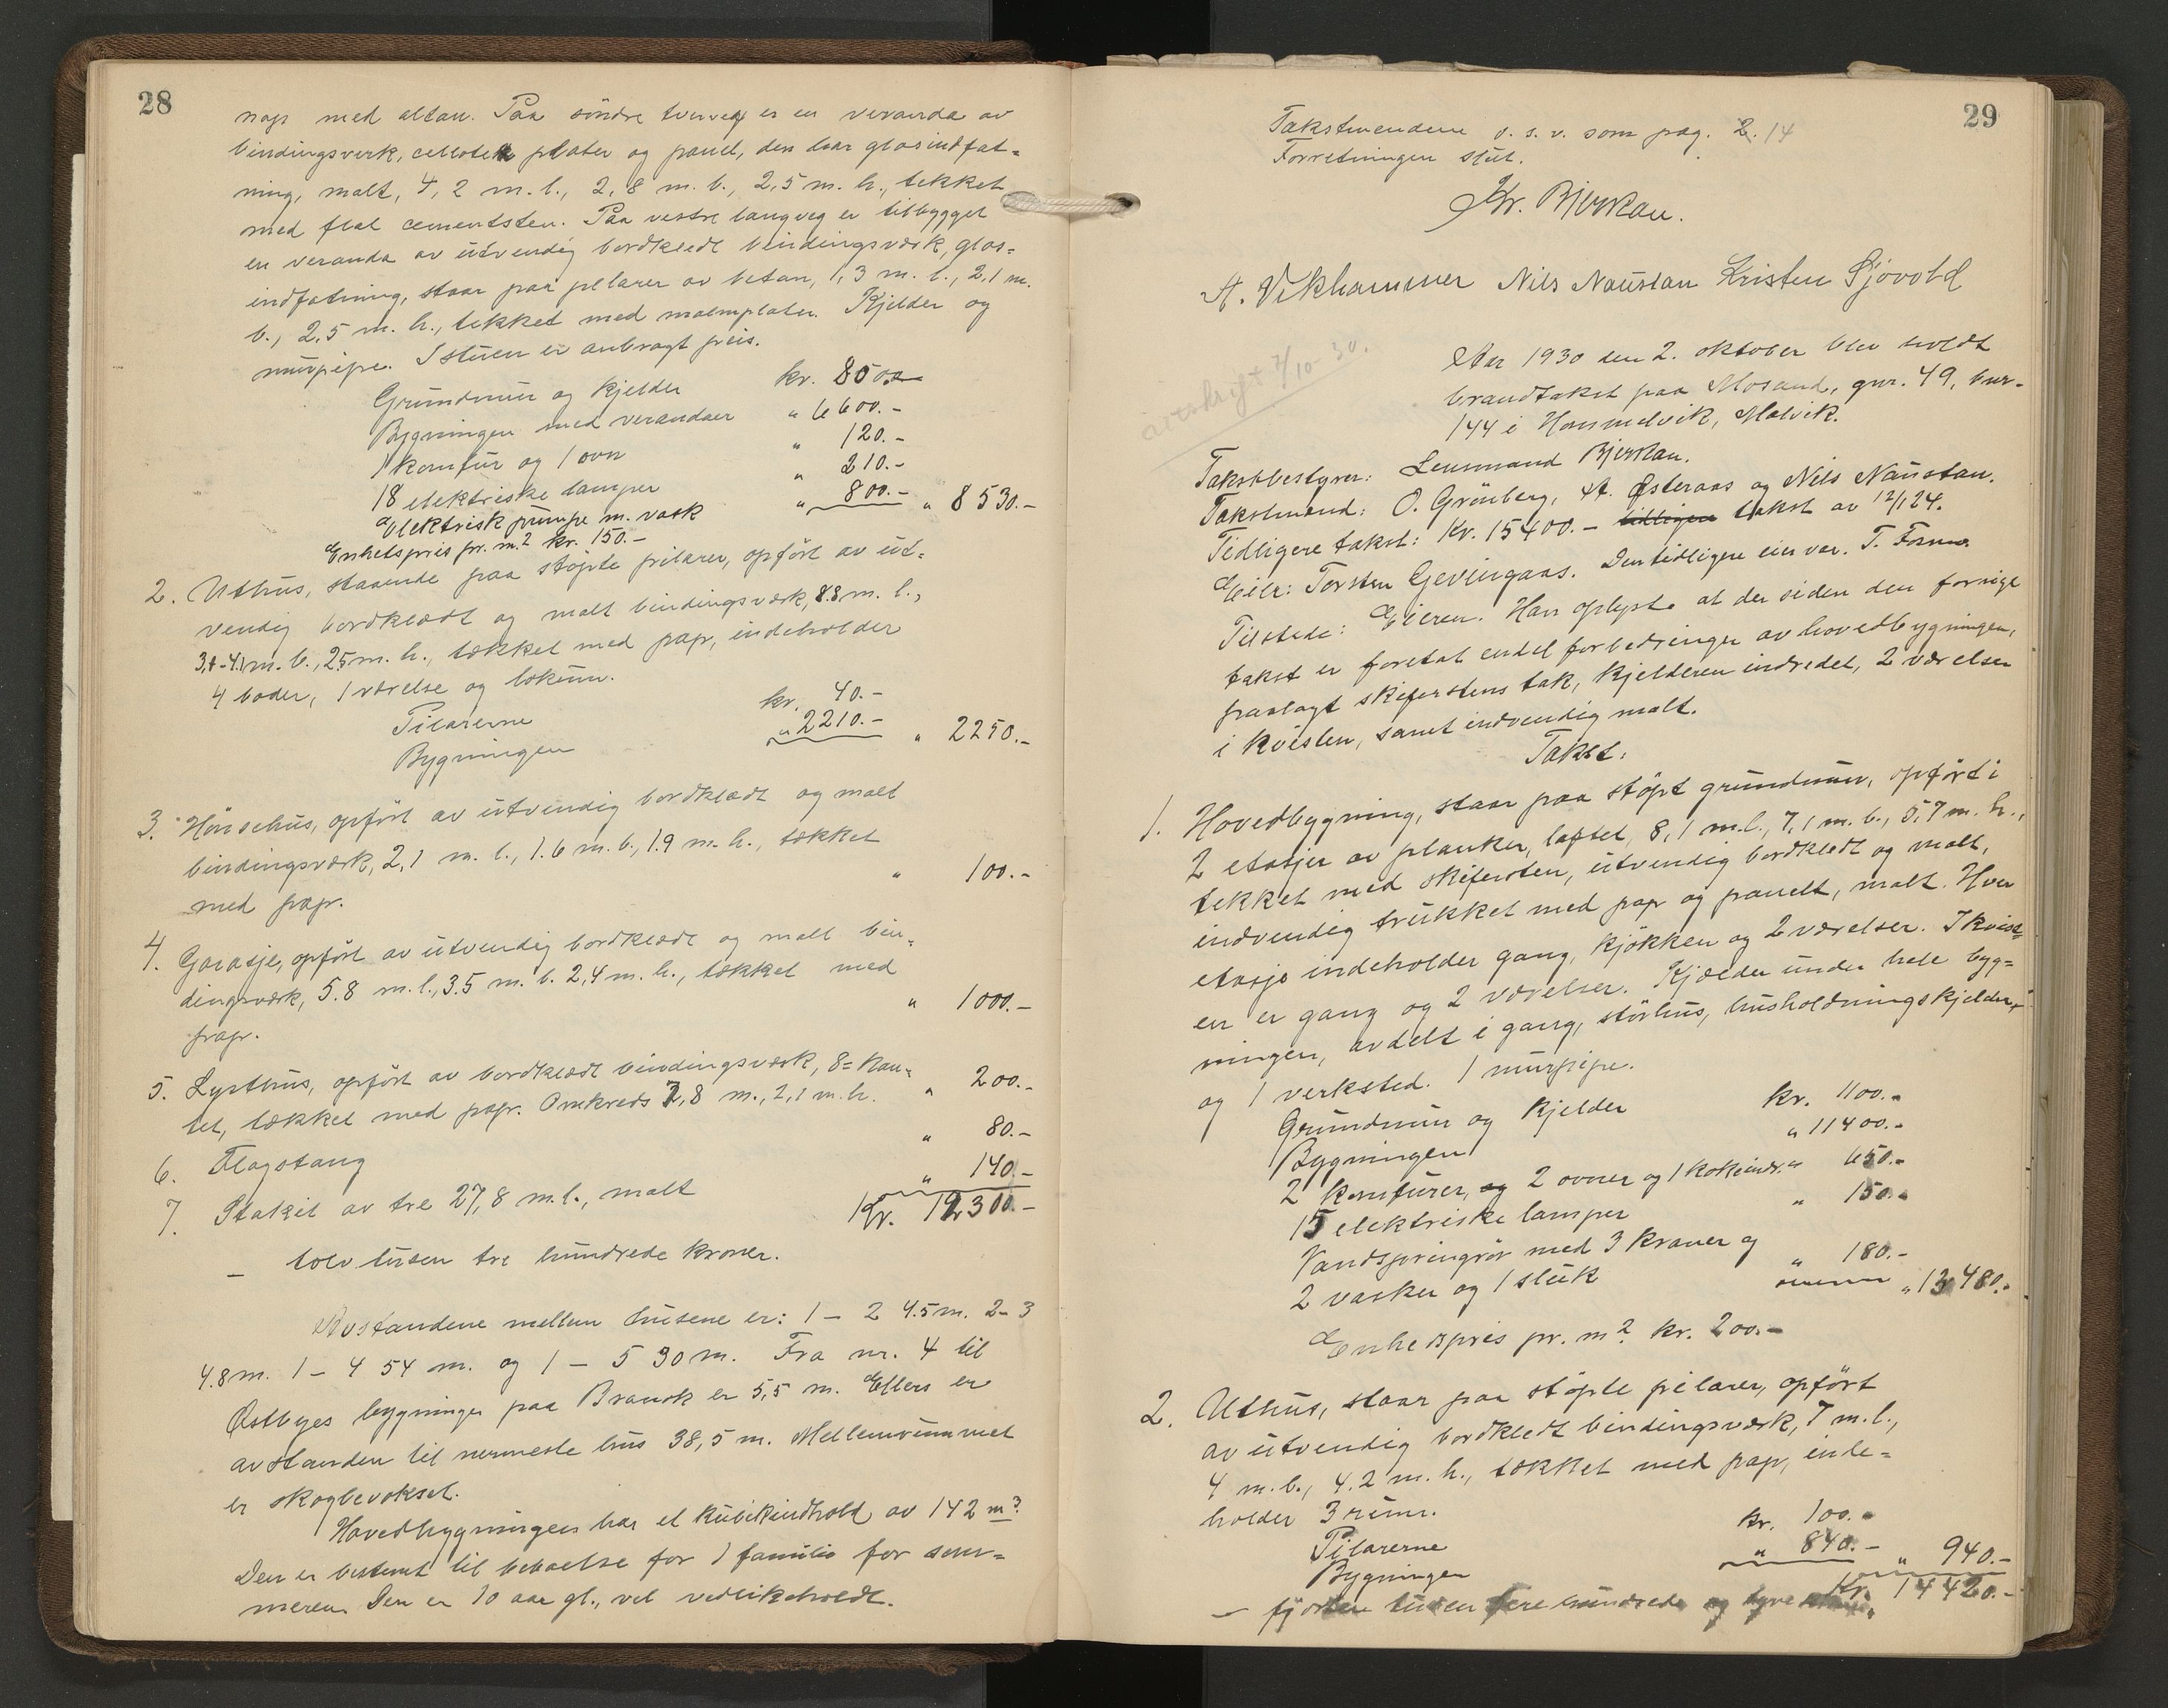 28
nags med altan. Paa söndre tverveg er en veranda av
bindingsverk, cellotex plater og panel, den har glasindfat=
ning, malt, 4,2 m. l., 2,8 m. b., 2,5 m. h., tekket
med flat cementsten. Paa vestre langveg er tilbygget
en veranda av utvendig bordkledt bindingsværk, glas=
indfatning, staar paa pilarer av betan, 1,3 m. l., 2,1 m.
b., 2,5 m. h., tekket med malmplater. Kjelder og
murpipe. I stuen er anbragt peis.
Grundmur og kjelder kr. 800.-
Bygningen med verandaer " 6600.-
1 komfur og 1 ovn " 120.-
18 elektriske lamper " 210.-
Elektrisk pumpe m. vask " 800.- " 8530.-
Enhetspris pr. m.2 kr. 150.-
2. Uthus, staaende paa støpte pilarer, opført av ut=
vendig bordklædt og malt bindingsværk, 8.8 m. l.,
3,4-4,1 m. b., 2,5 m. h., tækket med pap, indeholder
4 boder, 1 værelse og lokum.
Pilarerne kr. 40.-
Bygningen " 2210.- " 2250.-
3. Hönsehus, opfört av utvendig bordklædt og malt
bindingsværk, 2,1 m. l., 1.6 m. b., 1.9 m. h., tækket
med pap. " 100.-
4. Garasje, opført av utvendig bordklædt og malt bin=
dingsværk, 5.8 m. l., 3.5 m. b. 2,4 m. h., tækket med
pap. " 1000.-
5. Lysthus, opført av bordklædt bindingsværk, 8=kan=
tet, tækket med pap. Omkreds 7,8 m., 2,1 m. h. " 200.-
6. Flagstang " 80.-
7. Stakit av tre 27,8 m. l., malt " 140.-
Kr. 12300.-
- tolv tusen tre hundrede kroner.
Avstandene mellem husene er: 1 - 2 4.5 m. 2-3
4.8 m. 1 - 4 54 m. og 1 - 5 30 m. Fra nr. 4 til
Østbyes bygninger paa Bransk er 5,5 m. Ellers er
avstanden til nermeste hus 38,5 m. Mellemrummet
er skogbevokset.
Hovedbygningen har et kubikindhold av 142 m3.
Den er bestemt til beboelse for 1 familie for som=
meren. Den er 10 aar gl., vel vedlikeholdt.
29
Takstmendene o. s. v. som pag. 2. 14
Forretningen slut.
Kr. Bjerkan.
A. Vikhammer Nils Naustan Kristen Sjøvold
avskrift 7/10-30.
Aar 1930 den 2. oktober blev holdt
brandtakst paa Mosand, gnr. 49, bnr.
144 i Hommelvik, Malvik.
Takstbestyrer: Lensmand Bjerkan.
Takstmænd: O. Grönberg, A. Østeraas og Nils Naustan.
Tidligere takst: Kr. 15400.- tidligere takst av 12/1 24.
Eier: Torsten Gevingaas. Den tidligere eier var. T.
Tilstede: Eieren. Han oplyste at der siden den forrige
takst er foretat endel forbedringer av hovedbygningen,
paalagt skiferstens tak, kjelderen indredet, 2 værelser
i kvisten, samt indvendig malt.
Takst:
1. Hovedbygning, staar paa støpt grundmur, opført i
2 etasjer av planker, laftet, 8,1 m. l., 7,1 m. b., 5,7 m. h.,
tekket med skifersten, utvendig bordkledt og malt,
indvendig trukket med pap og panelt, malt. Hver
etasje indeholder gang, kjökken og 2 værelser. I kvist=
en er gang og 2 værelser. Kjælder under hele byg=
ningen, avdelt i gang, störhus, husholdningskjelder,
og 1 verksted. 1 murpipe.
Grundmur og kjelder kr. 1100.-
Bygningen " 11400.-
2 komfurer, og 2 ovner og 1 kokeindr. " 650.-
15 elektriske lamper " 150.-
Vandspringrör med 3 kraner og
2 vasker og 1 sluk " 180.- " 13480.-
Enhetspris pr. m2. kr. 200.-
2. Uthus, staar paa støpte pilarer, opført
av utvendig bordkledt bindingsværk, 7 m. l.,
4 m. b., 4.2 m. h., tækket med pap, inde=
holder 3 rum.
Pilarerne kr. 100.-
Bygningen " 840.- " 940.-
Kr. 14420.-
- fjorten tusen fire hundrede og tyve